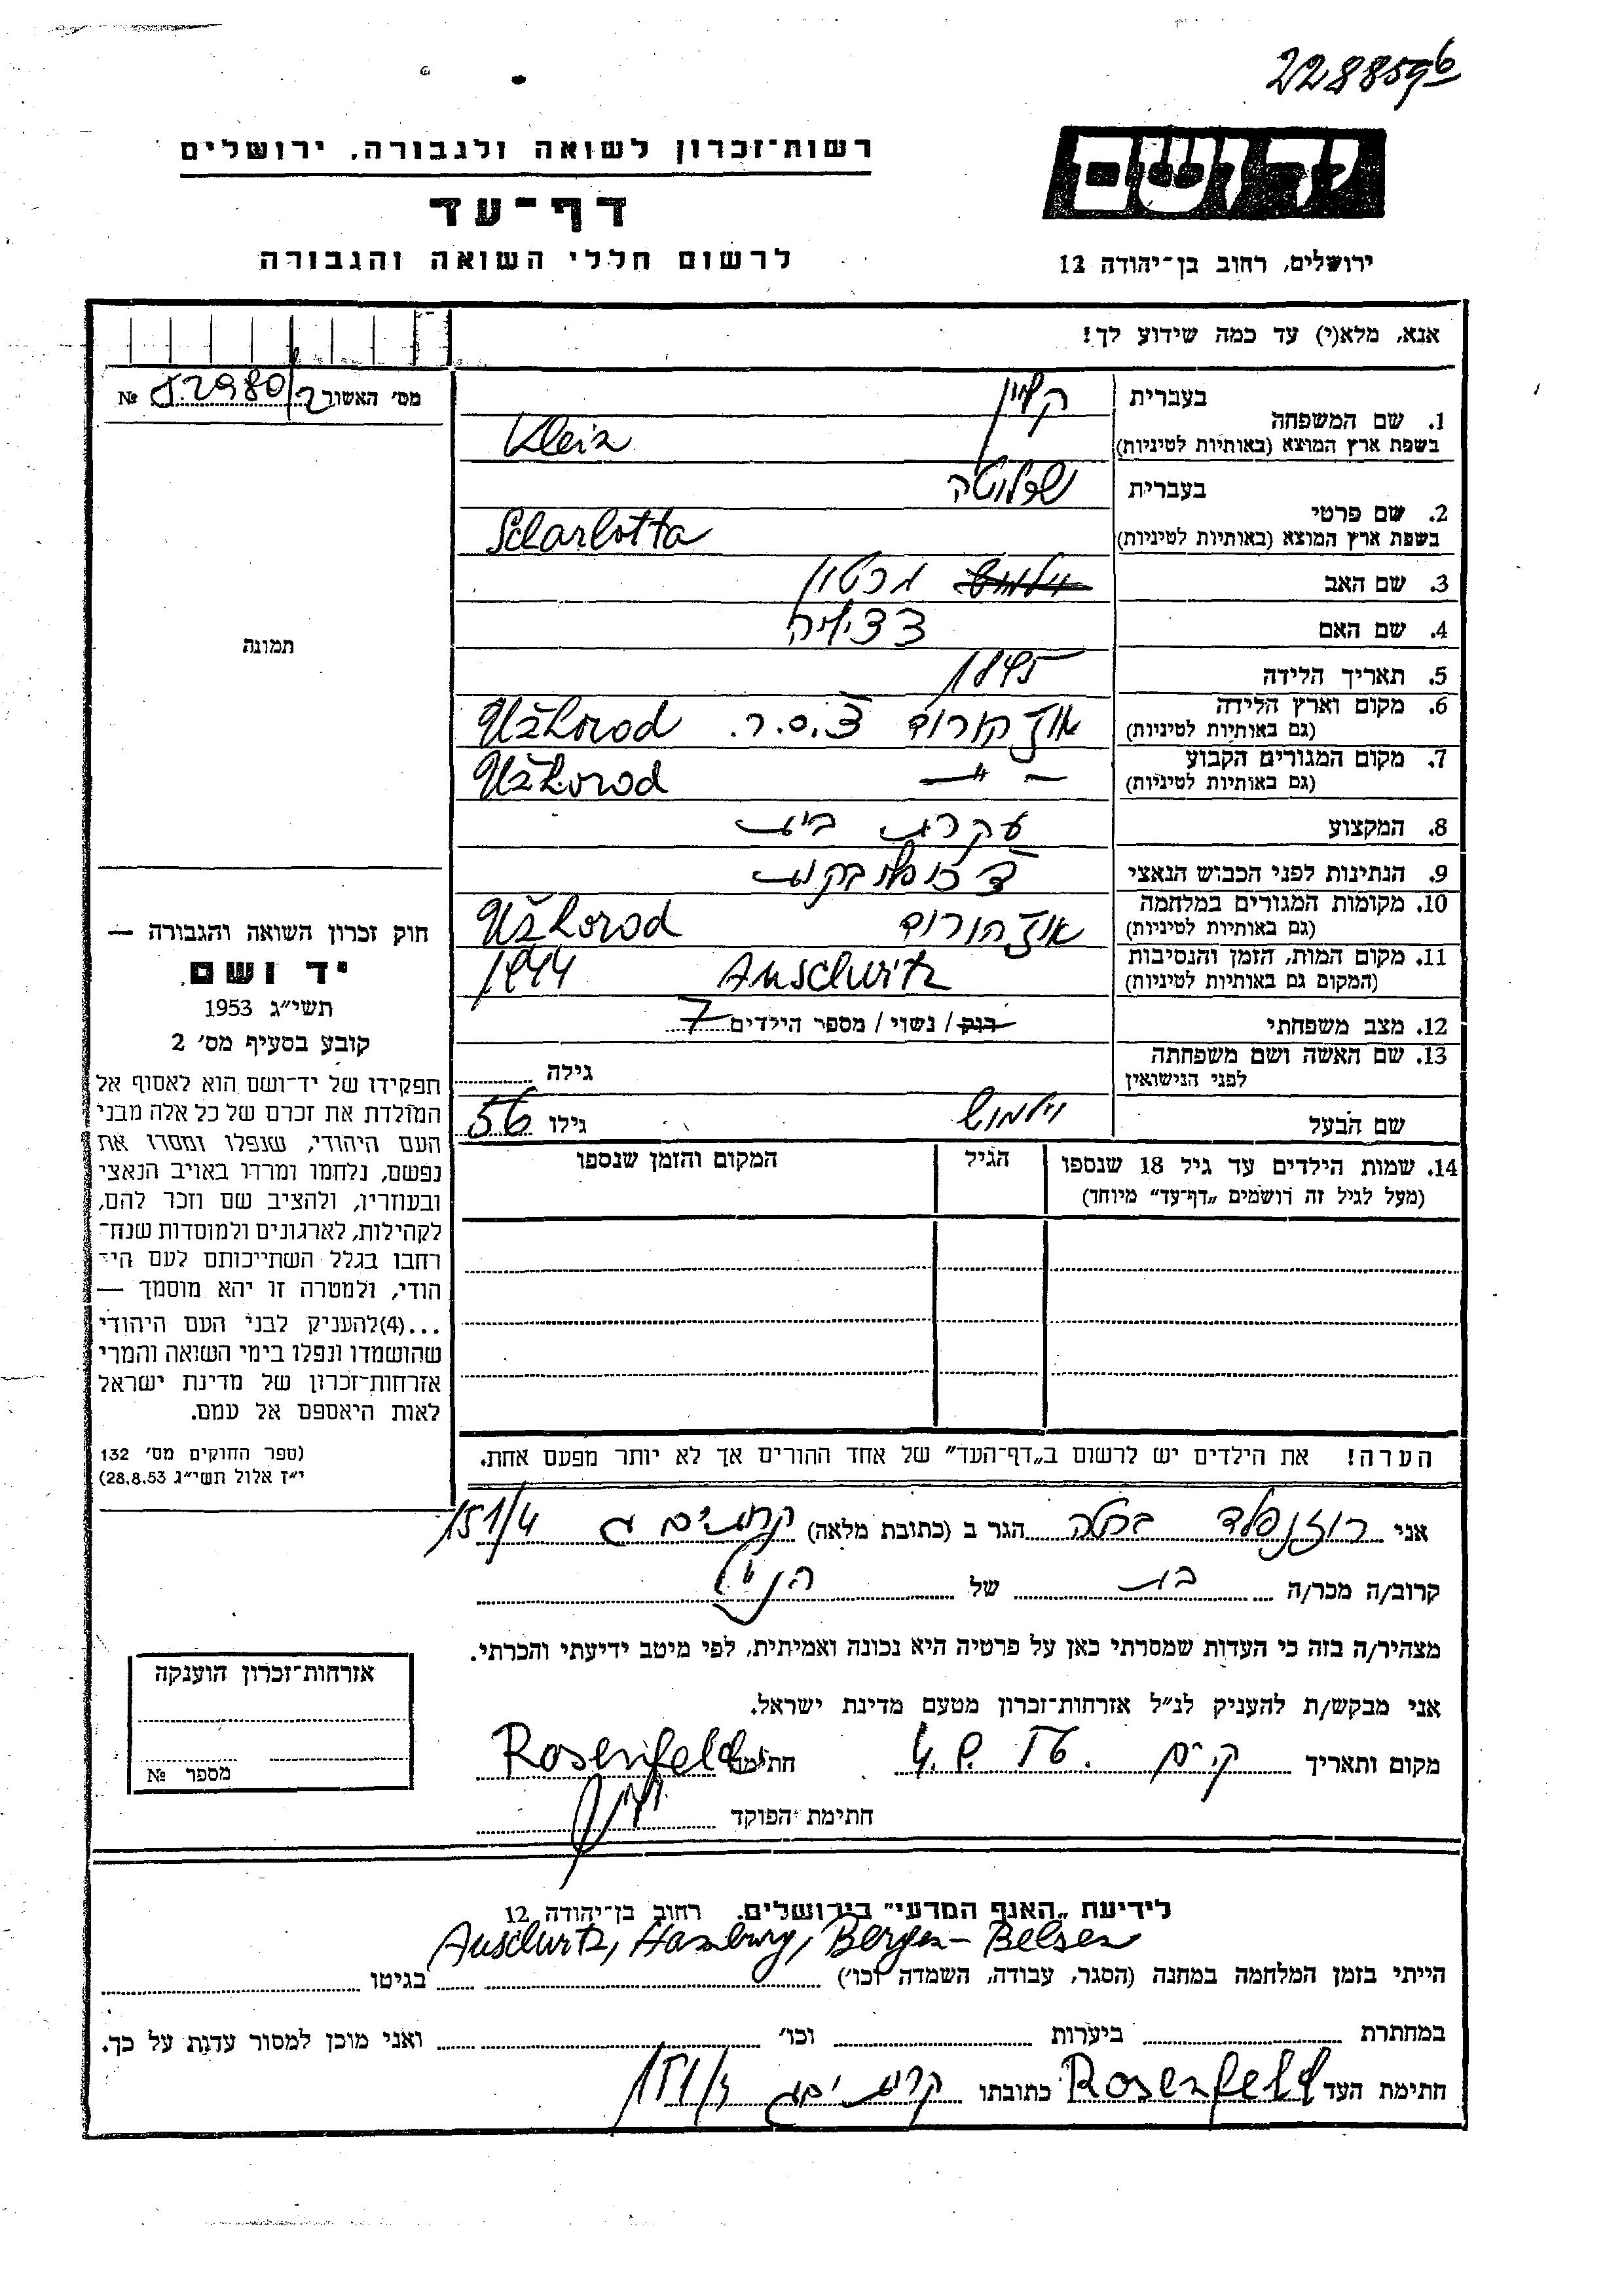 2288596
רשות־זכרון לשואה ולגבורה. ירושלים
דף־עד
לרשום חללי השואה והגבורה
יד ושם
ירושלים, רחוב בן־יהודה 12
אנא, מלא(י) עד כמה שידוע לך!
מס' האשור 52980/2 №
1. שם המשפחה
בעברית קליין
בשפת ארץ המוצא (באותיות לטיניות) Klein
2. שם פרטי
בעברית שרלוטה
בשפת ארץ המוצא (באותיות לטיניות) Scharlotta
3. שם האב
4. שם האם צציליה
5. תאריך הלידה 1895
6. מקום וארץ הלידה
(גם באותיות לטיניות) אוז'הורוד צ.ס.ר. Užhorod
7. מקום המגורים הקבוע
(גם באותיות לטיניות) — " — Užhorod
8. המקצוע עקרת בית
9. הנתינות לפני הכבוש הנאצי
10. מקומות המגורים במלחמה
(גם באותיות לטיניות) אוז'הורוד Užhorod
11. מקום המות, הזמן והנסיבות
(המקום גם באותיות לטיניות) Auschwitz 1944
12. מצב משפחתי רוק / נשוי / מספר הילדים 7
13. שם האשה ושם משפחתה
לפני הנישואין גילה
שם הבעל וילמוש גילו 56
14. שמות הילדים עד גיל 18 שנספו הגיל המקום והזמן שנספו
(מעל לגיל זה רושמים „דף־עד" מיוחד)
הערה! את הילדים יש לרשום ב„דף־העד" של אחד ההורים אך לא יותר מפעם אחת.
תמונה
חוק זכרון השואה והגבורה —
יד ושם
תשי״ג 1953
קובע בסעיף מס' 2
תפקידו של יד־ושם הוא לאסוף אל
המולדת את זכרם של כל אלה מבני
העם היהודי, שנפלו ומסרו את
נפשם, נלחמו ומרדו באויב הנאצי
ובעוזריו, ולהציב שם וזכר להם,
לקהילות, לארגונים ולמוסדות שנח־
רחבו בגלל השתייכותם לעם הי־
הודי, ולמטרה זו יהא מוסמך —
...(4)להעניק לבני העם היהודי
שהושמדו ונפלו בימי השואה והמרי
אזרחות־זכרון של מדינת ישראל
לאות היאספם אל עמם.
(ספר החוקים מס' 132
י״ז אלול תשי״ג 28.8.53)
אני רוזנפלד ברטה הגר ב (כתובת מלאה) 151/4
קרוב/ה מכר/ה בת של הנ״ל
מצהיר/ה בזה כי העדות שמסרתי כאן על פרטיה היא נכונה ואמיתית, לפי מיטב ידיעתי והכרתי.
אני מבקש/ת להעניק לנ״ל אזרחות־זכרון מטעם מדינת ישראל.
מקום ותאריך ק. ים 4.9.56. חתימה Rosenfeld
חתימת הפוקד
אזרחות־זכרון הוענקה
מספר №
לידיעת „האגף המדעי" בירושלים. רחוב בן־יהודה 12
Auschwitz, Hamburg, Bergen-Belsen
הייתי בזמן המלחמה במחנה (הסגר, עבודה, השמדה וכו') בגיטו
במחתרת ביערות וכו' ואני מוכן למסור עדות על כך.
חתימת העד Rosenfeld כתובתו קרית ים